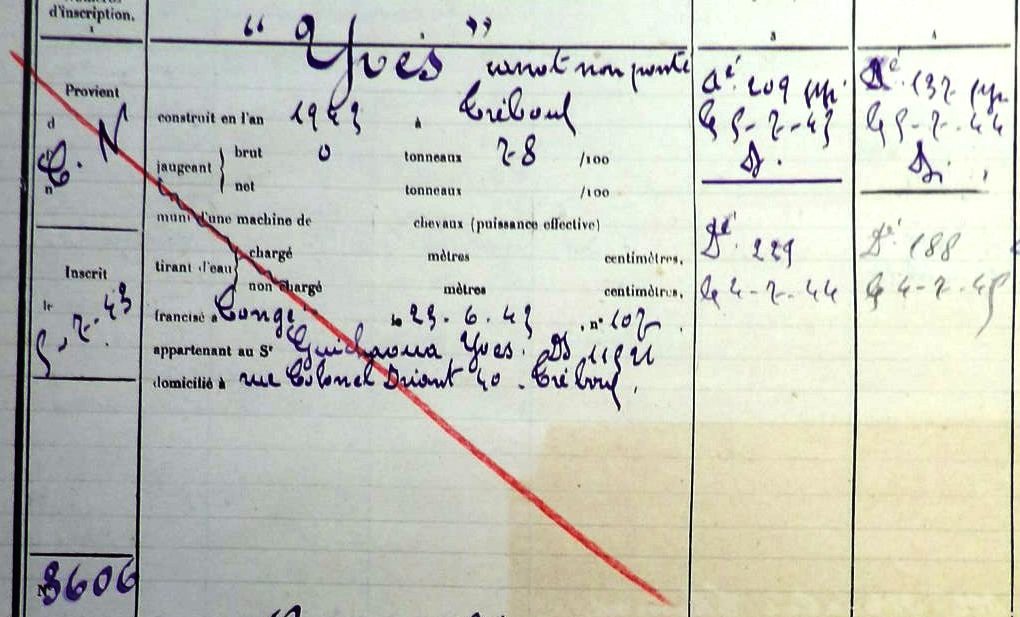 d'inscription.
1
" Yves " canot non ponté
3
4
Provient
d
C. N
n
construit en l'an 1943 à Tréboul
jaugeant brut 0 tonneaux 28 /100
net tonneaux /100
muni d'une machine de chevaux (puissance effective)
tirant d'eau chargé mètres centimètres.
non chargé mètres centimètres.
Inscrit
le
5.2.43
francisé à le 23.6.43 , n° 107
appartenant au Sr Guichaoua Yves.
domicilié à rue Colonel Driant 40 . Tréboul.
Dé 209
le 5-2-43
Dé 229
le 4-2-44
Dé 132
le 5-2-44
Dé 188
le 4-2-45
N° 3606